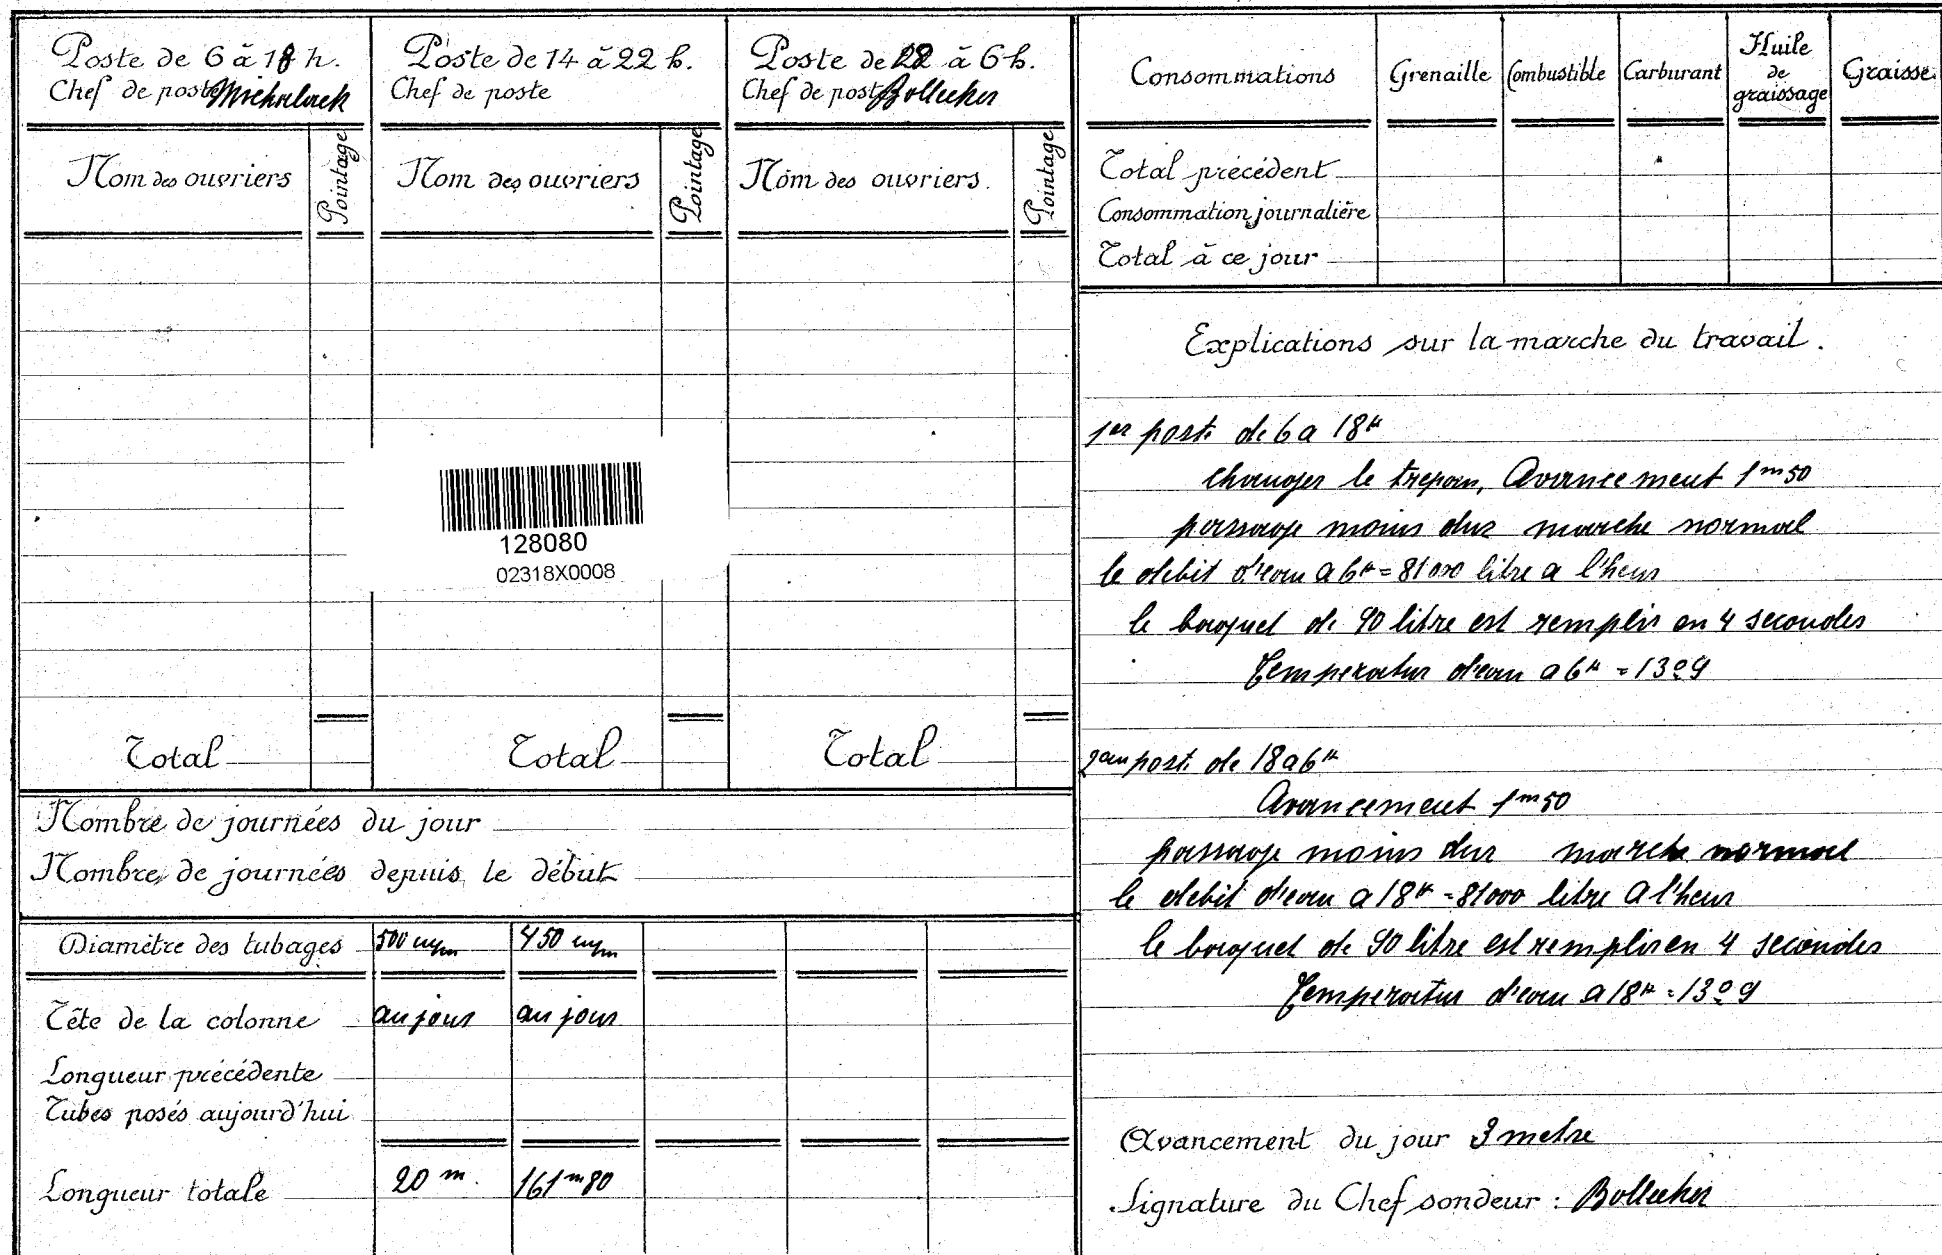 Poste de 6 à 18 h.
Chef de poste
Nom des ouvriers
Pointage
Total
Poste de 14 à 22 h.
Chef de poste
Nom des ouvriers
Pointage
Total
Poste de 22 à 6 h.
Chef de poste Bollecher
Nom des ouvriers
Pointage
Total
128080
02318X0008
Nombre de journées du jour
Nombre de journées depuis le début
Diamètre des tubages 500 m/m 450 m/m
Tête de la colonne au jour au jour
Longueur précédente
Tubes posés aujourd'hui
Longueur totale 20 m. 161 m 80
Consommations Grenaille Combustible Carburant Huile de graissage Graisse
Total précédent
Consommation journalière
Total à ce jour
Explications sur la marche du travail.
1er poste de 6 a 18 h
changer le trepan, Avancement 1 m 50
passage moins dur marche normal
le debit d'eau a 6 h = 81000 litre a l'heur
le baquet de 90 litre est remplir en 4 secondes
Temperatur d'eau a 6 h = 13º9
2em poste de 18 a 6 h
Avancement 1 m 50
passage moins dur marche normal
le debit d'eau a 18 h = 81000 litre a l'heur
le baquet de 90 litre est remplir en 4 secondes
Temperatur d'eau a 18 h = 13º9
Avancement du jour 3 metre
Signature du Chef sondeur : Bollecher